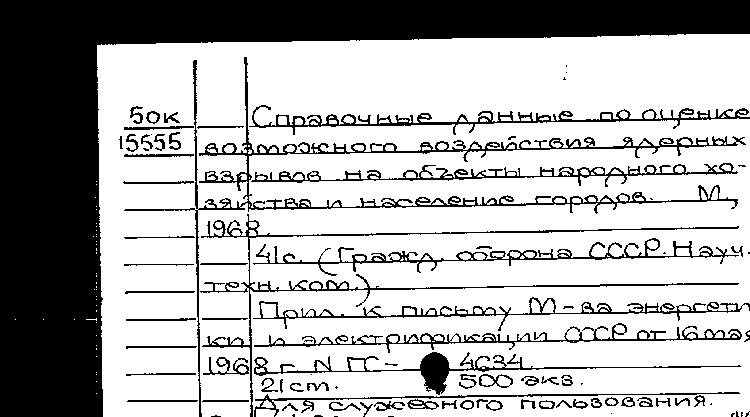 50к
15555
Справочные данные по оценке
возможного воздействия ядерных
взрывов на объекты народного хо-
зяйства и население городов. М.,
1968.
41с. (Гражд. оборона СССР. Науч.
техн. ком.).
Прил. к письму М-ва энергети
ки и электрификации СССР от 16 мая
1968 г. N ПС- 4634
21 ст. 500 экз.
Для служебного пользования.